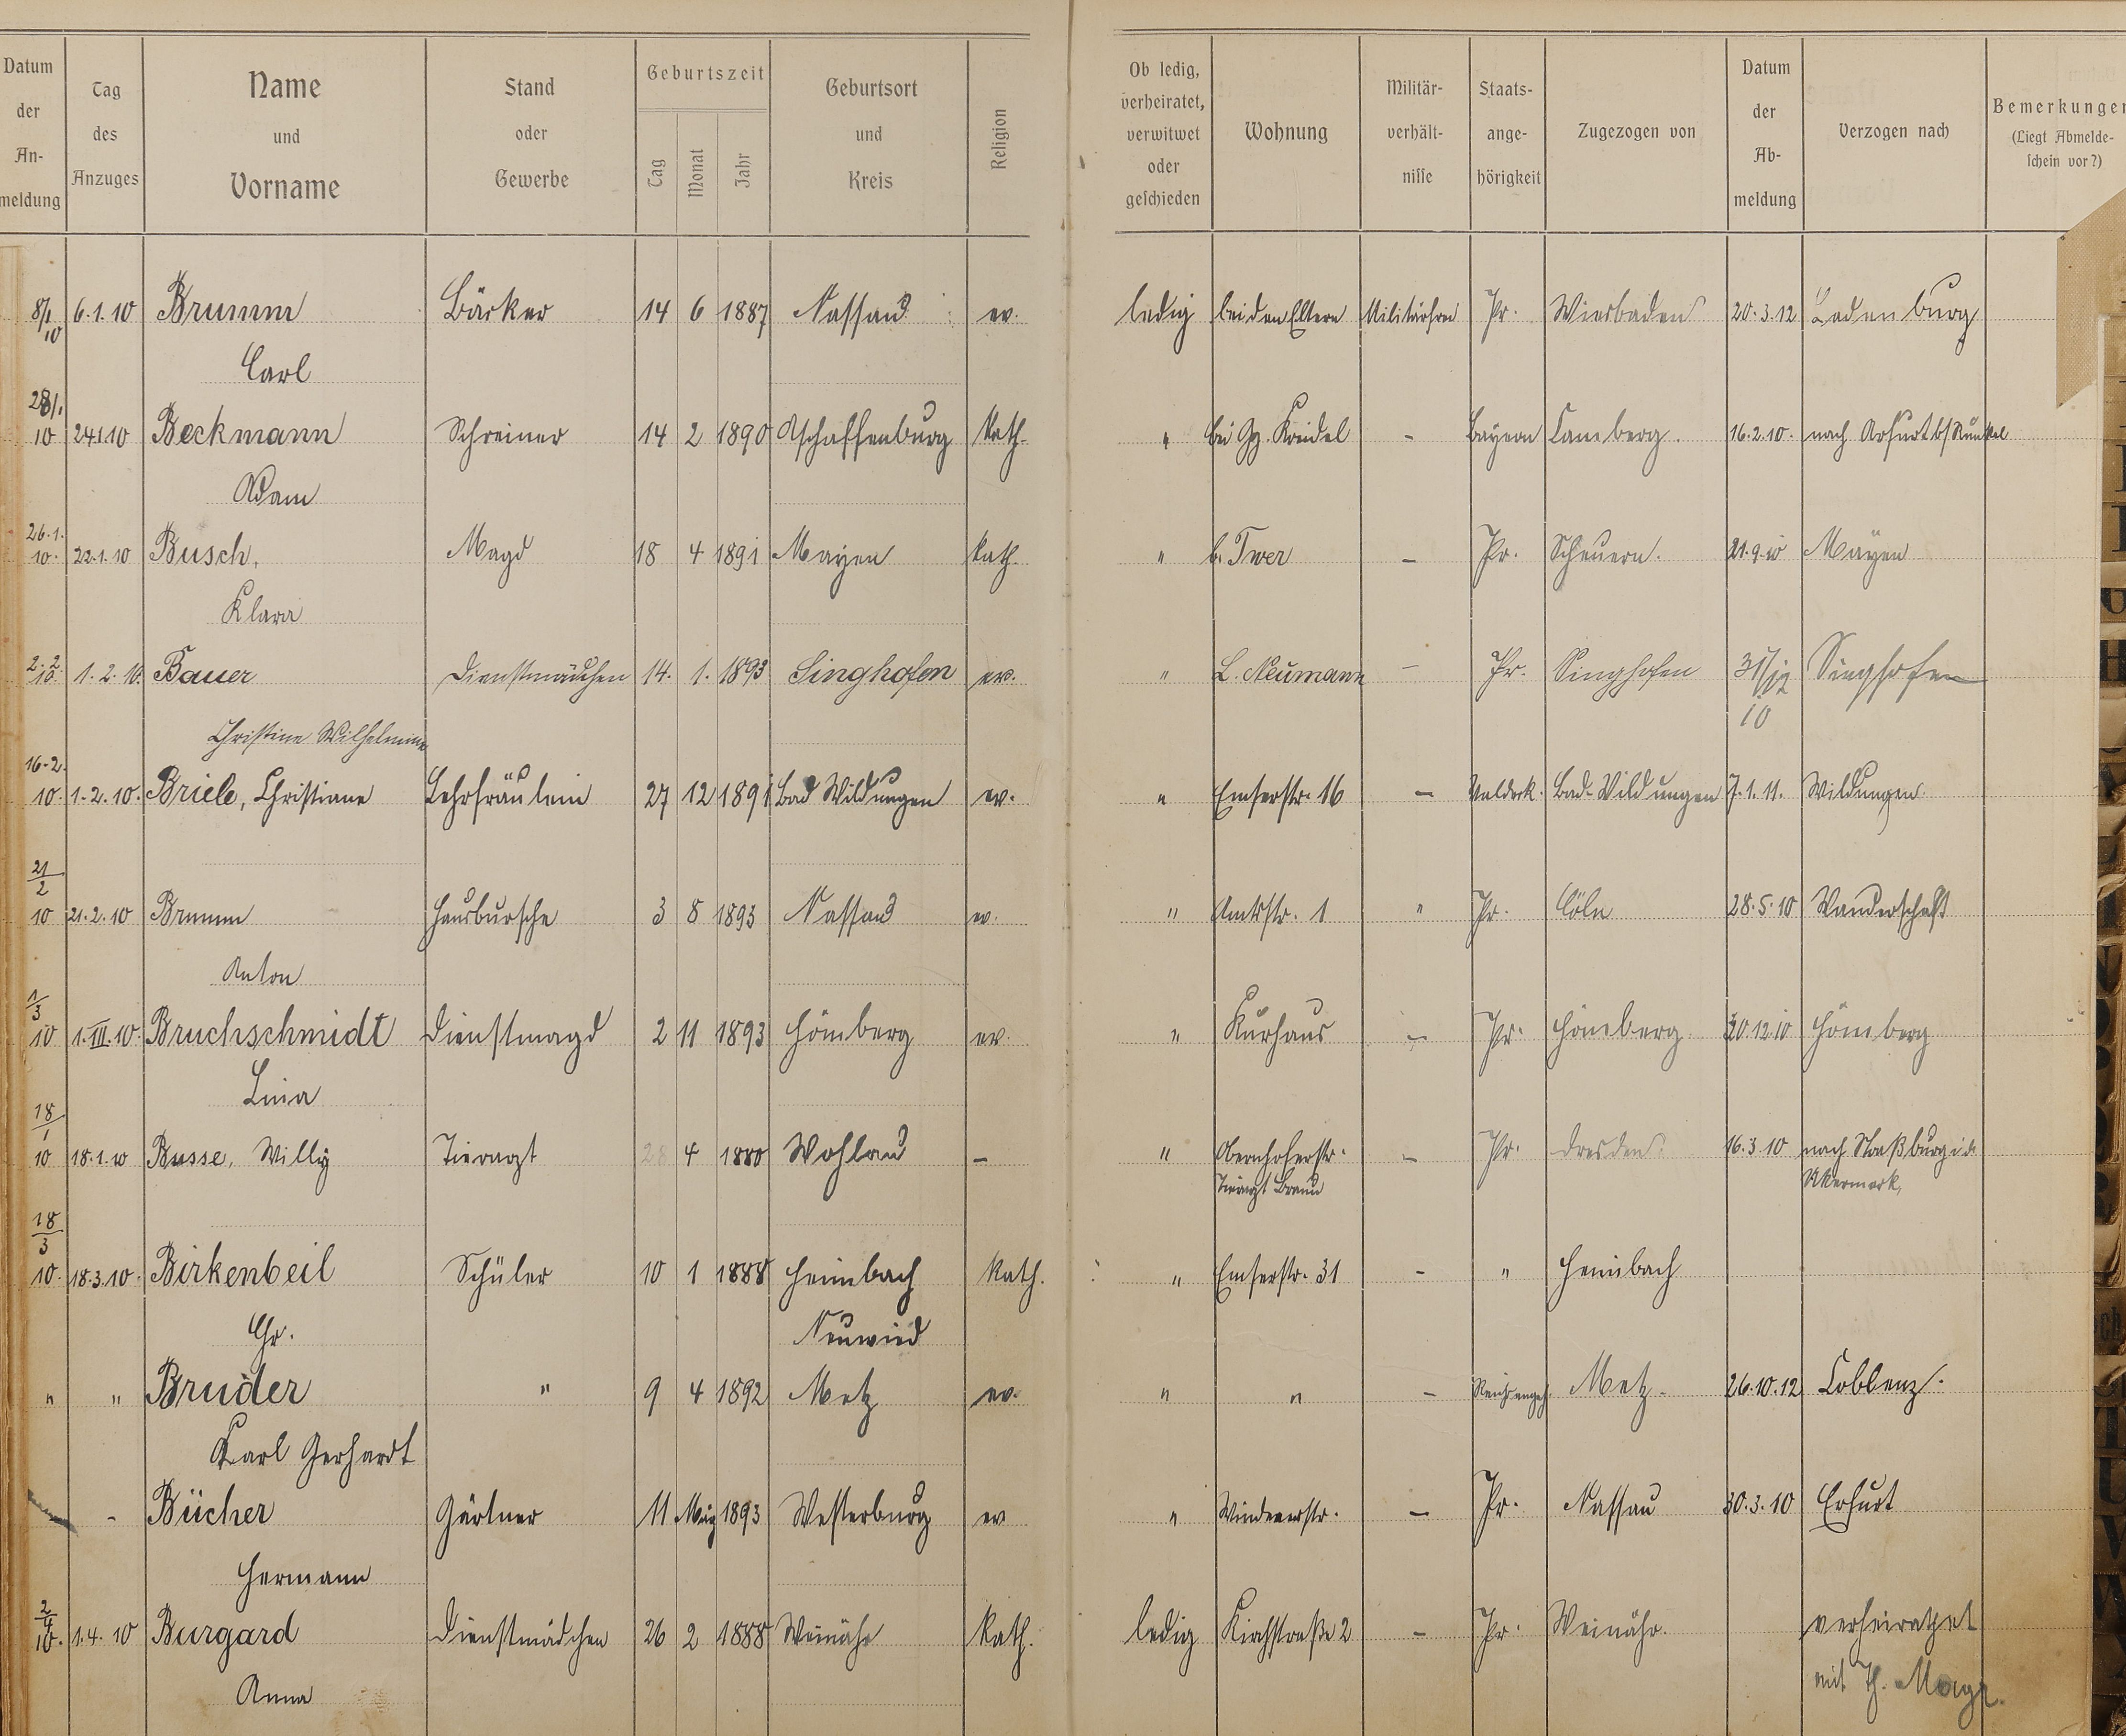 Datum der Anmeldung | Tag des Anzuges | Name und Vorname | Stand oder Gewerbe | Geburtszeit Tag Monat Jahr | Geburtsort und Kreis | Religion | Ob ledig, verheiratet, verwitwet oder geschieden | Wohnung | Militärverhältnisse | Staatsangehörigkeit | Zugezogen von | Datum der Abmeldung | Verzogen nach | Bemerkungen (Liegt Abmeldeschein vor?)
8/1 10 | 6.1.10 | Brumm | Bäcker | 14 | 6 | 1887 | Nassau | ev. | ledig | bei den Eltern | Militärfrei | Pr. | Wiesbaden | 20.3.12 | Ladenburg
Carl
28/1. 10 | 24.1.10 | Beckmann | Schreiner | 14 | 2 | 1890 | Aschaffenburg | kath. | " | bei Gg. Kreidel | - | Bayern | Camberg. | 16.2.10. | nach Arfurt b/Runkel
Adam
26.1. 10. | 22.1.10 | Busch, | Magd | 18 | 4 | 1891 | Mayen | kath. | " | b. Twer | - | Pr. | Scheuern. | 21.9.10 | Mayen
Klara
2.2. 10. | 1.2.10. | Bauer | Dienstmädchen | 14. | 1. | 1893 | Singhofen | ev. | " | L. Neumann | - | Pr. | Singhofen | 31/12 10 | Singhofen
Christine Wilhelmine
16.2. 10. | 1.2.10. | Briele, Christiane | Lehrfräulein | 27 | 12 | 1891 | Bad Wildungen | ev. | " | Emserstr. 16 | - | Waldeck. | Bad-Wildungen | 7.1.11. | Wildungen.
21/2 10 | 21.2.10 | Brumm | Hausbursche | 3 | 8 | 1893 | Nassau | ev. | " | Amtsstr. 1 | " | Pr. | Cöln | 28.5.10 | Wanderschaft
Anton
1/3 10 | 1.III.10. | Bruchschmidt | Dienstmagd | 2 | 11 | 1893 | Hömberg | ev. | " | Kurhaus | - | Pr. | Hömberg. | 20.12.10 | Hömberg
Lina
18/1 10 | 18.1.10 | Busse, Willy | Tierarzt | 28 | 4 | 1880 | Wohlau | - | " | Obernhoferstr. | - | Pr. | Dresden. | 16.3.10 | nach Straßburg i.d.
Tierarzt Braun | Ukermark,
18/3 10. | 18.3.10. | Birkenbeil | Schüler | 10 | 1 | 1888 | Heimbach | kath. | " | Emserstr. 31 | - | " | Heimbach
Chr. | Neuwied
" | " | Bruder | " | 9 | 4 | 1892 | Metz | ev. | " | " | - | Reichsangeh. | Metz. | 26.10.12 | Coblenz.
Karl Gerhardt
- | Bücher | Gärtner | 11 | März | 1893 | Westerburg | ev | " | Windenerstr. | - | Pr. | Nassau | 30.3.10 | Erfurt
Hermann
2/4 10. | 1.4.10 | Burgard | Dienstmädchen | 26 | 2 | 1888 | Weinähr | kath. | ledig | Kirchstraße 2 | - | Pr. | Weinähr. | verheirathet
Anna | mit Th.